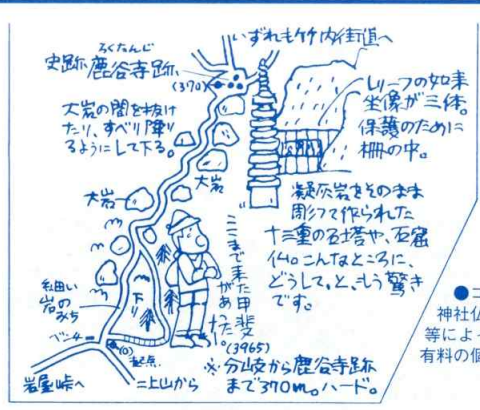 いずれも竹内街道へ
ろくたんじ
史跡 鹿谷寺跡
(370)
大岩の間を抜け
たり、すべり降り
るようにして下る。
レリーフの如来
坐像が三体。
保護のために
柵の中。
大岩
大岩
凝灰岩をそのまま
彫って作られた
十三重の石塔や、石窟
仏。こんなところに、
どうして。と、もう驚き
です。
ここまで来た甲斐
があった。
(3965)
細い
岩の
みち
下り
ベンチ
(0)
起点
岩屋峠へ
二上山から
※分岐から鹿谷寺跡
まで370m。ハード。
●コ
神社仏
等によっ
有料の個